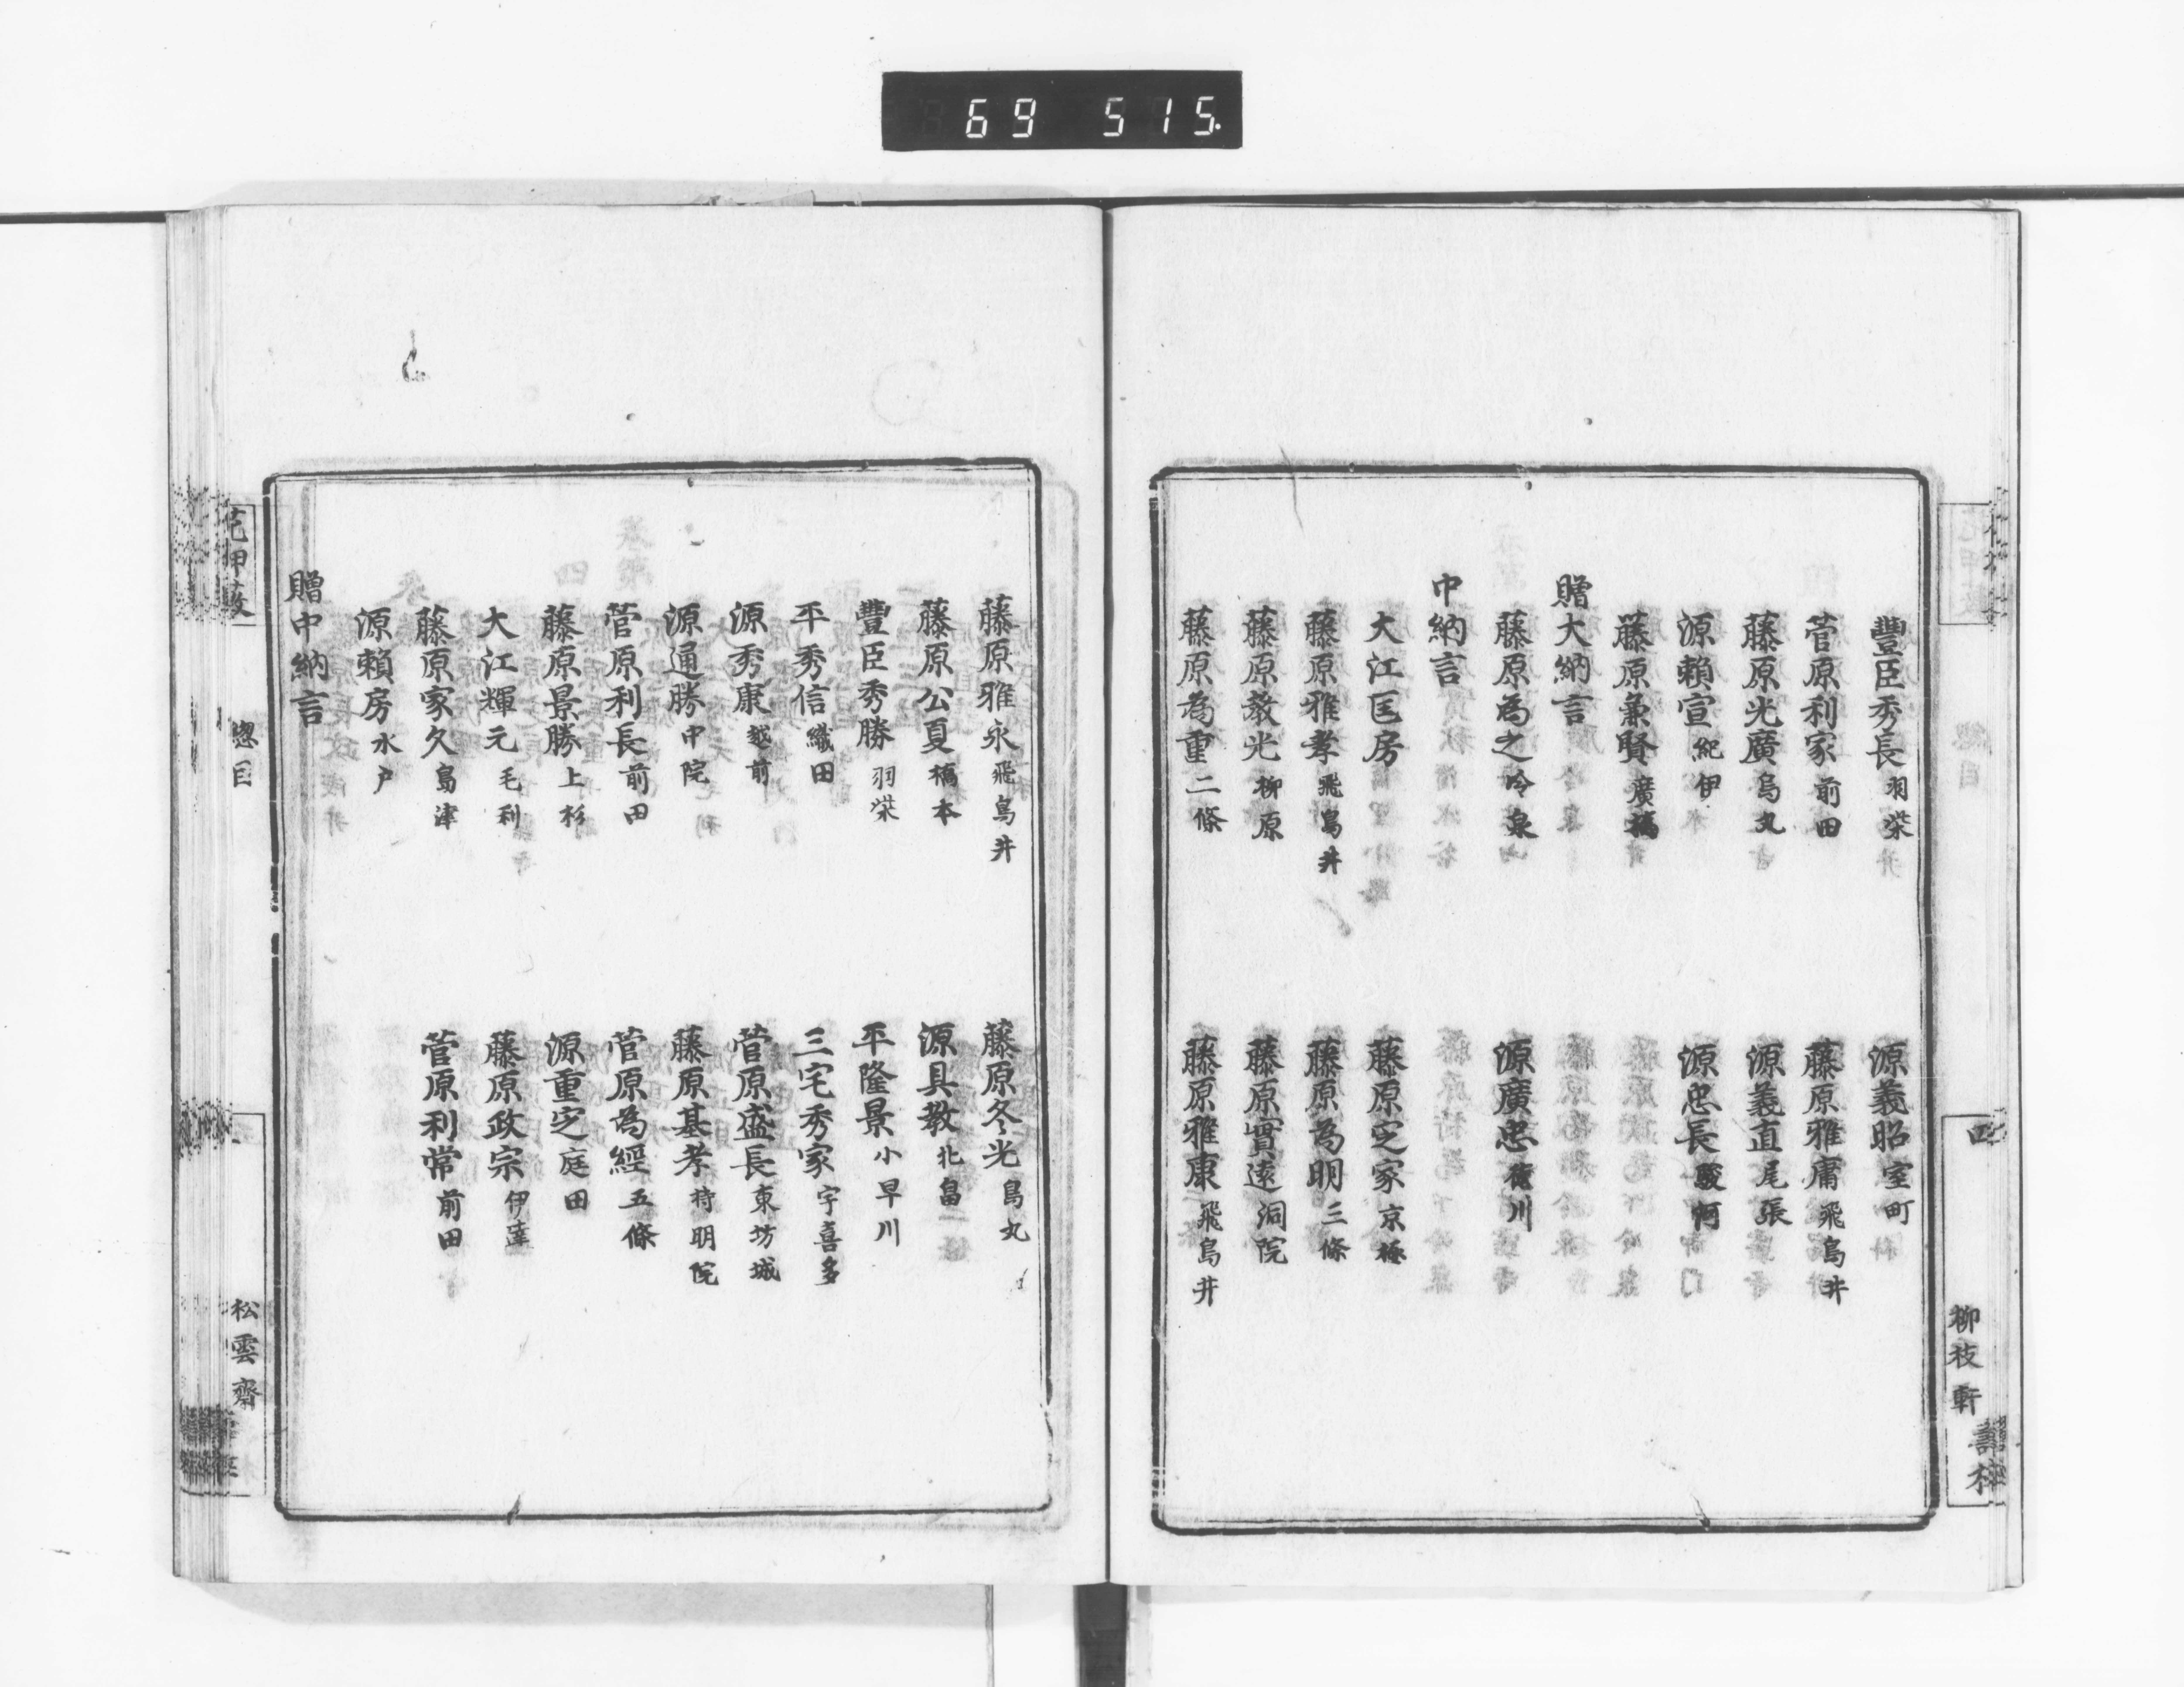 69 515.
豐臣秀長 羽柴 源義昭 室町
菅原利家 前田 藤原雅庸 飛鳥井
藤原光廣 烏丸 源義直 尾張
源賴宣 紀伊 源忠長 駿河
藤原兼賢 廣橋
贈大納言
藤原為之 冷泉 源廣忠 德川
中納言
大江匡房 藤原定家 京極
藤原雅孝 飛鳥井 藤原為明 三條
藤原教光 柳原 藤原實遠 洞院
藤原為重 二條 藤原雅康 飛鳥井
四
柳枝軒
藤原雅永 飛鳥井 藤原冬光 烏丸
藤原公夏 橋本 源具教 北畠
豐臣秀勝 羽柴 平隆景 小早川
平秀信 織田 三宅秀家 宇喜多
源秀康 越前 菅原盛長 東坊城
源通勝 中院 藤原基孝 持明院
菅原利長 前田 菅原為經 五條
藤原景勝 上杉 源重定 庭田
大江輝元 毛利 藤原政宗 伊達
藤原家久 島津 菅原利常 前田
源賴房 水戶
贈中納言
花押藪
總目
松雲齋